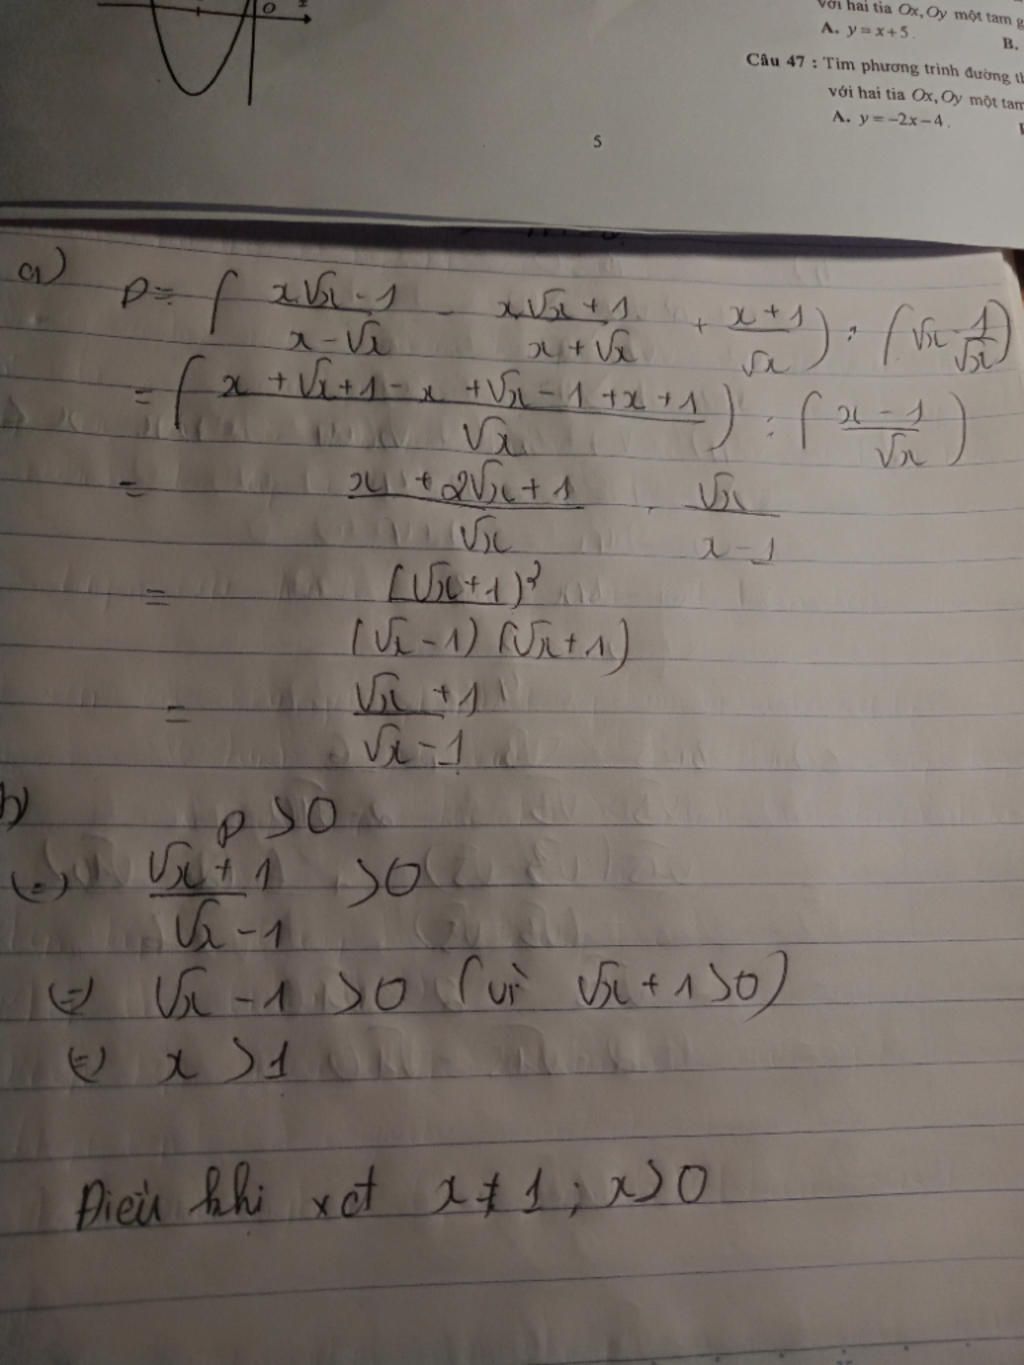 O
với hai tia Ox, Oy một tam g
A. y = x+5.
B.
Câu 47 : Tìm phương trình đường th
với hai tia Ox, Oy một tam
A. y = -2x - 4.
5
a) P = ( (x√x - 1)/(x - √x) - (x√x + 1)/(x + √x) + (x + 1)/√x ) : ( √x - 1/√x )
= ( (x + √x + 1 - x + √x - 1 + x + 1)/√x ) : ( (x - 1)/√x )
= (x + 2√x + 1)/√x . √x/(x - 1)
= (√x + 1)²/((√x - 1)(√x + 1))
= (√x + 1)/(√x - 1)
b) P > 0
(=) (√x + 1)/(√x - 1) > 0
(=) √x - 1 > 0 (vì √x + 1 > 0)
(=) x > 1
Điều khi x ≠ 1 ; x > 0